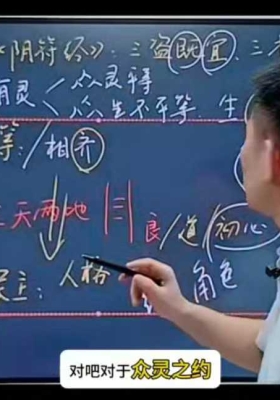 《阴符经》：三盗既宜，三
众灵平等
众生不平等，生
等：/相齐
天两地 良/道/初心
主：人格 角色
对吧对于众灵之约